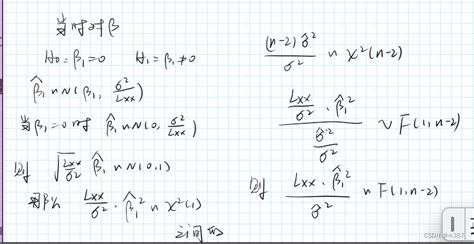 当时对β
H₀=β₁=0 H₁=β₁≠0
β̂₁ ~ N(β₁, σ²/Lxx)
当β₁=0时 β̂₁ ~ N(0, σ²/Lxx)
则 √(Lxx/σ²) β̂₁ ~ N(0,1)
Lxx/σ² · β̂₁² ~ χ²(1)
(n-2)σ̂²/σ² ~ χ²(n-2)
(Lxx/σ² · β̂₁²)/(σ̂²/σ²) ~ F(1,n-2)
则 Lxx·β̂₁²/σ̂² ~ F(1,n-2)